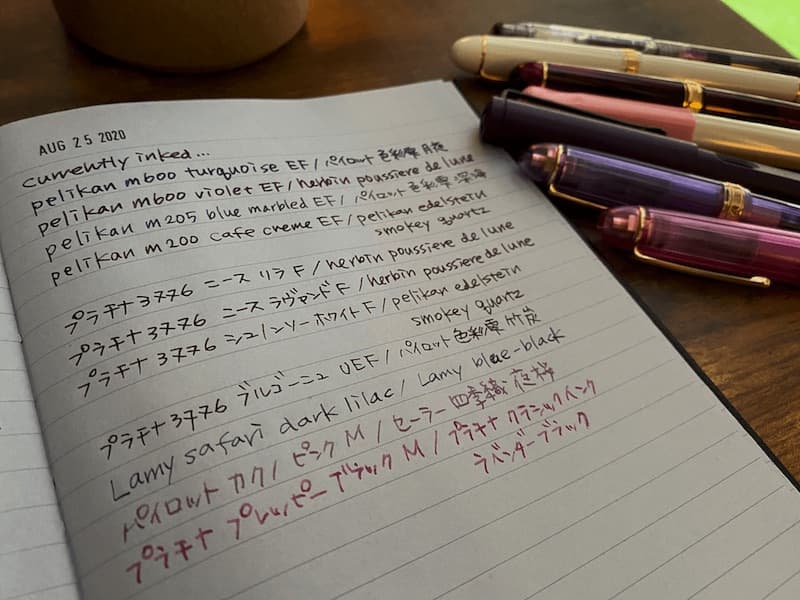 AUG 25 2020
currently inked...
pelikan m600 turquoise EF / パイロット 色彩雫 月夜
pelikan m600 violet EF / herbin poussiere de lune
pelikan m205 blue marbled EF / パイロット 色彩雫 深海
pelikan m200 cafe creme EF / pelikan edelstein
smokey quartz
プラチナ 3776 ニース リラ F / herbin poussiere de lune
プラチナ 3776 ニース ラヴァンド F / herbin poussiere de lune
プラチナ 3776 シェノンソーホワイト F / pelikan edelstein
smokey quartz
プラチナ 3776 ブルゴーニュ UEF / パイロット 色彩雫 竹炭
Lamy safari dark lilac / Lamy blue-black
パイロット カクノ ピンク M / セーラー 四季織 夜桜
プラチナ プレッピー ブラック M / プラチナ クラシックインク
ラベンダーブラック